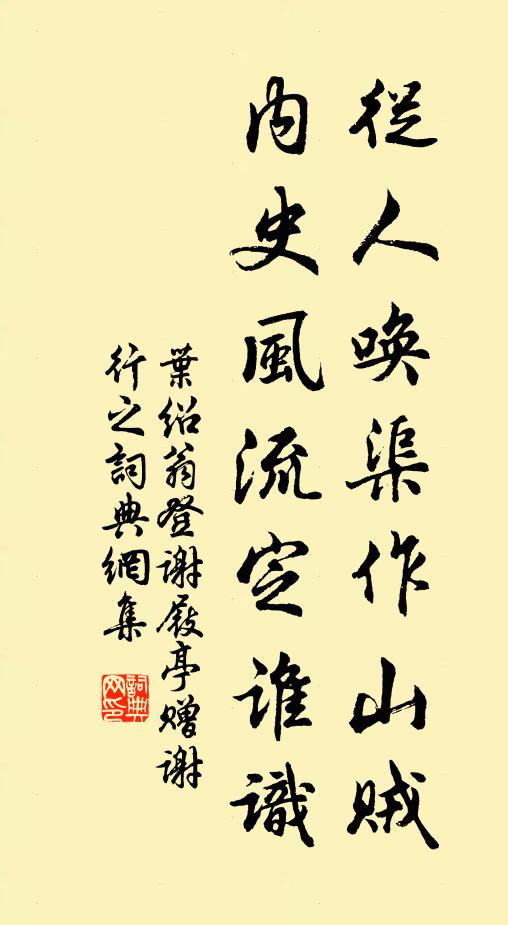 從人喚渠作山賊
內史風流定誰識
葉紹翁登謝屐亭贈謝
行之詞典網集
詞典
网印